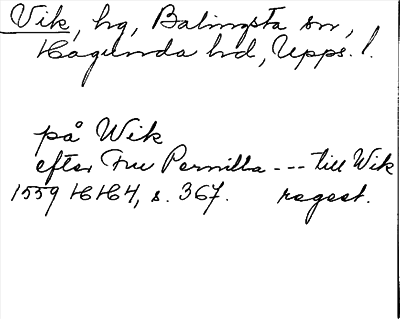 Vik, hg, Balingsta sn,
Hagunda hd, Upps. l.
på Wik
efter Fru Pernilla --- till Wik
1559 HH4, s. 367. regest.